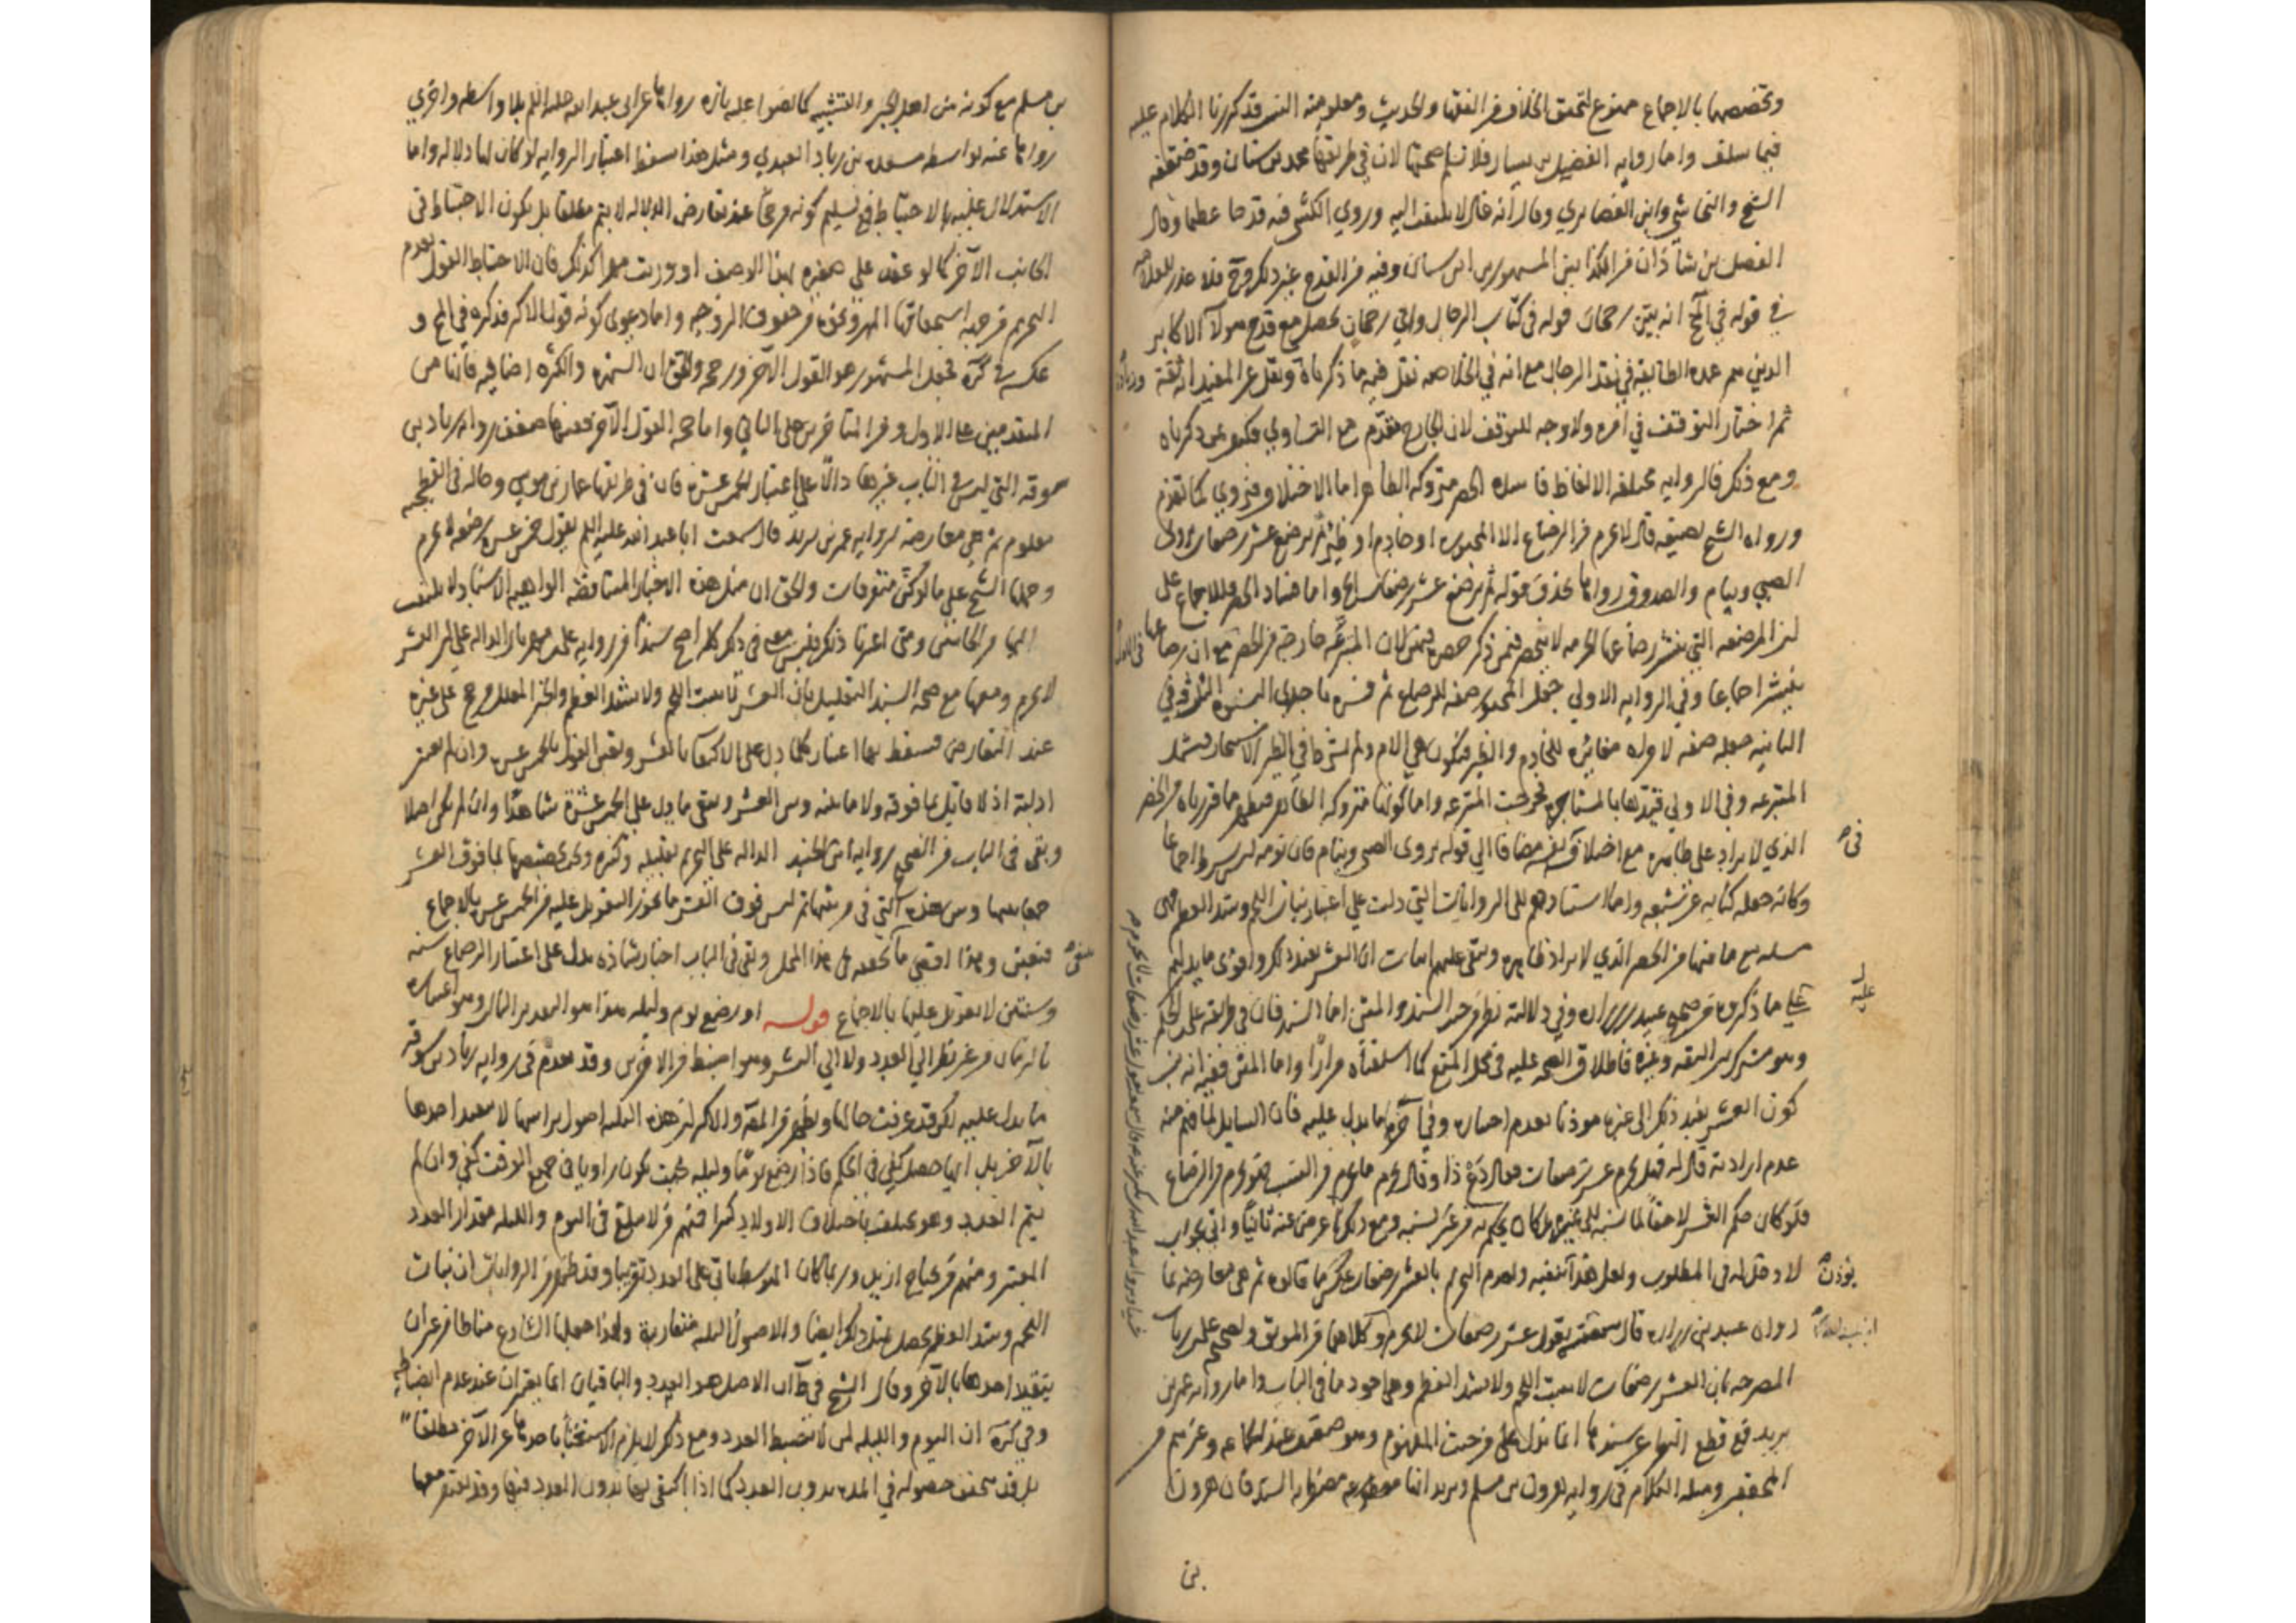 وتخصيصها بالاجماع ممنوع لتحقق الخلاف من الفقها والحديث ومعلومية النسب قد كررنا الكلام عليه
فيما سلف واما رواية الفضيل بن يسار فلا نسلم صحتها لان في طريقها محمد بن سنان وقد ضعفه
الشيخ والنجاشي وابن الغضايري وقال انه غال لا يلتفت اليه وروي الكشي فيه قدحا عظيما وقال
الفضل بن شاذان من الكذابين المشهورين ابن سنان وفيه من القدح غير ذلك فلا عذر للعلامة
في قوله في انه بين رجحان قوله في كتاب الرجال واي رجحان يحصل مع قدح هولاء الاكابر
الذين هم عمدة الطايفة في نقد الرجال مع انه في الخلاصة نقل فيه ما ذكرناه ونقل عن المفيد انه ثقة
ثم اختار التوقف في امره ولا وجه للتوقف لان الجارح مقدم مع التساوي فكيف عن ذكرناه
ومع ذلك فالرواية مختلفة الالفاظ فاسدة الحصر متروكة الظاهر اما الاختلاف فروي كما تقدم
ورواه الشيخ بصيغة قال لا يحرم من الرضاع الا المجبورة او خادم او ظئر ثم يرضع عشر رضعات يروى
الصبي وينام والصدوق رواها بحذف قوله ثم يرضع عشر رضعات الخ واما فساد الحصر فللاجماع على
ان المرضعة التي ينشر رضاعها الحرمة لا ينحصر فيمن ذكر لان المتبرعة خارجة من الحصر مع ان رضاعها
ينشر اجماعا وفي الرواية الاولى جعل المجبور صفة للرضاع ثم فسره باحدى الثلاثة وفي
الثانية جعله صفة لامراة مغايرة للخادم والظئر فتكون هي الام ولم يشترط في الظئر الاستيجار فيشمل
المتبرعة وفي الاولى قيدها بالمستاجرة فخرجت المتبرعة واما كونها متروكة الظاهر فيظهر مما قررناه من الحصر
الذي لا يراد على ظاهره مع اختلافه مضافا الي قوله يروى الصبي وينام فان نومه ليس بشرط اجماعا
وكانه جعله كناية عن شبعه واما استنادهم الي الروايات التي دلت علي اعتبار نبات اللحم وشد العظم فهي
مسلمة مع ما فيها من الحصر الذي لا يراد ظاهره ويبقى عليهم اثبات ان العشر يفيد ذلك واقوى ما يدلهم
على ما ذكروه من صحيح عبيد بن زرارة وفي دلالته نظر من حيث السند والمتن اما السند فان في طريقه علي بن الحكم
وهو مشترك بين الثقة وغيره فاطلاق الصحة عليه في محل المنع كما اسلفناه مرارا واما المتن ففيه انه نسب
كون العشر يفيد ذلك الى غيره موذنا بعدم اختياره وفي اخرها ما يدل عليه فان السايل لما فهم منه
عدم ارادته قال له فهل يحرم عشر رضعات فقال دع ذا وقال يحرم ما يحرم من النسب فهو يحرم من الرضاع
فلو كان حكم العشر لاحقا لما نسبه الى غيره بل كان يحكم به من غير نسبة ومع ذلك اعرض عنه ثانيا واتى بجواب
لا دخل له في المطلوب ولعل هذا تقية ولعدم التحريم بالعشر رضعات عكس ما قالوه ثم هي معارضة بما
رواه عبيد بن زرارة قال سمعته يقول عشر رضعات لا يحرمن وكلاهما من الموثق وبصحيح علي بن رياب
المصرحة بان العشر رضعات لا ينبت اللحم ولا يشد العظم وهي اجود ما في الباب واما رواية عمر بن
يزيد فمع قطع النظر عن سندها انما تدل على من حيث المفهوم وهو ضعيف عند الجماعة وغيرهم من
المحققين ومثله الكلام في رواية هرون بن مسلم ويزيد انها مضطربة السند فان هرون
بن
في
عليه
يوذن
بن مسلم مع كونه من اهل الجبر والتشبيه كما نصوا عليه بانه رواها عن ابي عبدالله عليه السلم بلا واسطة واخرى
رواها عنه بواسطة مسعدة بن زياد العبدي ومثل هذا يسقط اعتبار الرواية لو كان لها دلالة واما
الاستدلال عليه بالاحتياط فمع تسليم كونه مرجحا عند تعارض الدلالة لا يتم مطلقا بل يكون الاحتياط في
الجانب الآخر كما لو عقد علي صغيره بهذا الوصف او ورثت مهرا كذلك فان الاحتياط القول بعدم
التحريم من جهة استحقاقها المهر ونحوه من حقوق الزوجية واما دعوى كونه قول الاكثر فذكره في المخ و
عكس في كره فجعل المشهور هو القول الآخر ورجحه والحق ان الشهرة والكثرة اضافية فانها من
المتقدمين على الاول ومن المتاخرين على الثاني واما حجة القول الآخر فمنها ضعف رواية زياد بن
سوقة التي ليس في الباب غيرها دالا على اعتبار الخمس عشرة فان في طريقها عمار بن موسى وحاله في الفطحية
معلوم ثم هي معارضة برواية عمر بن يزيد قال سمعت ابا عبد الله عليه السلم يقول خمس عشرة رضعة لا يحرم
وحملها الشيخ علي ما لو كن متفرقات والحق ان مثل هذه الاخبار المتناقضة الواهية الاسناد لا يلتفت
اليها من الجانبين ومتى اعتبرنا ذلك فليس معه في ذلك كله اصح سندا من رواية علي بن رياب الدالة علي ان العشر
لا يحرم ومعها مع صحة السند التعليل بان العشر لا ينبت اللحم ولا يشد العظم والخبر المعلل مرجح على غيره
عند التعارض فسقط بها اعتبار كلما دل على الاكتفاء بالعشر وبقي القول بالخمس عشرة وان لم يعتبر
ادلته اذ لا قايل بما فوقه ولا ما بينه وبين العشر ويبقى ما دل على الخمس عشرة شاهدا وان لم يكن اصلا
وبقي في الباب من الصحيح رواية ابن الجنيد الدالة على التحريم بقليله وكثيره ويمكن تخصيصها بما فوق العشر
جمعا بينها وبين هذه التي في مرتبتها ثم ليس فوق العشر ما يجوز التعويل عليه غير الخمس عشرة بالاجماع
فتعين وهذا اقصى ما تحقق في هذا المحل وبقي في الباب اخبار شاذة تدل على اعتبار الرضاع سنة
وسنتين لا يعول عليها بالاجماع قوله او رضع يوم وليلة هذا هو التقدير الثاني وهو اعتباره
بالزمان من غير نظر الي العدد ولا الي النشو وهو اضبط من الاخرين وقد تقدم في رواية زياد بن سوقة
ما يدل عليه لكن قد عرفت حالها ويظهر من المصنف والاكثر ان هذه الثلثة اصول براسها لا يتقيد احدها
بالآخر بل ايها حصل كفى في الحكم فاذا رضع يوما وليلة بحيث يكون راويا في جميع الوقت كفى وان لم
يتم العدد وهو يختلف باختلاف الاولاد كثيرا فمنهم من لا يبلغ في اليوم والليلة مقدار العدد
المعتبر ومنهم من يحتاج ازيد وربما كان المتوسط ياتي على العدد تقريبا وقد ظهر من الروايات ان نبات
اللحم وشد العظم يحصل بمثل ذلك ايضا والاصول الثلثة متقاربة ولهذا جعلها الشارع مناطا من غير ان
يتقيد احدها بالآخر وقال الشيخ في ط ان الاصل هو العدد والباقيان انما يعتبران عند عدم انضباطه
وفي كره ان اليوم والليلة لمن لا يضبط العدد ومع ذلك لا يلزم الاستغناء باحدها عن الآخر مطلقا
بل قد يتحقق حصوله في المدة بدون العدد كما اذا اكتفى بها بدون العدد فيها وقد يعتبر معها